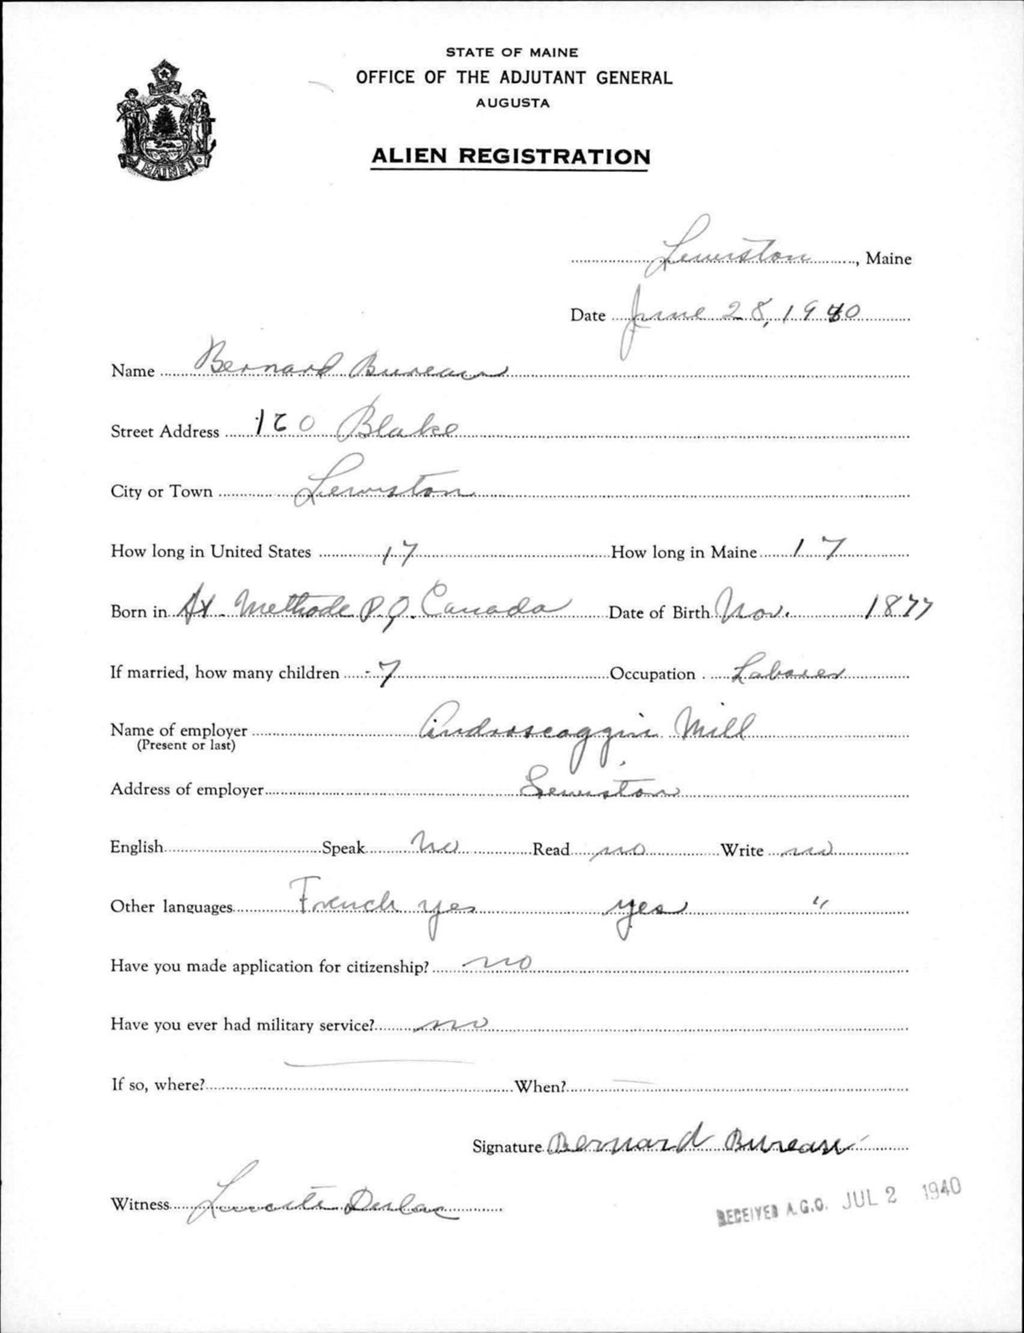 STATE OF MAINE
OFFICE OF THE ADJUTANT GENERAL
AUGUSTA
ALIEN REGISTRATION
MAINE
Lewiston, Maine
Date June 28, 1940
Name Bernard Bureau
Street Address 160 Blake
City or Town Lewiston
How long in United States 17 How long in Maine 17
Born in St. Methode P.Q. Canada Date of Birth Nov. 1877
If married, how many children - 7 Occupation Laborer
Name of employer Androscoggin Mill
(Present or last)
Address of employer Lewiston
English Speak No Read no Write no
Other languages French yes yes "
Have you made application for citizenship? no
Have you ever had military service? no
If so, where? When?
Signature Bernard Bureau
Witness
RECEIVED A.G.O. JUL 2 1940